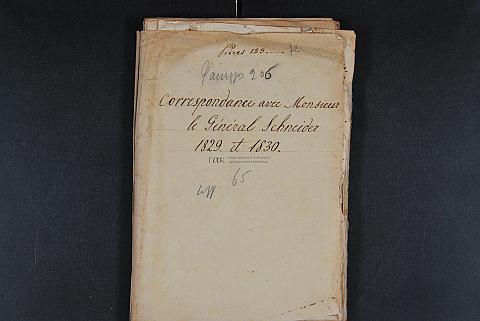 Pièces 128. 72
Φάκελλος 206
Correspondance avec Monsieur
le Général Schneider
1829. et 1830.
ΓΑΚ
65